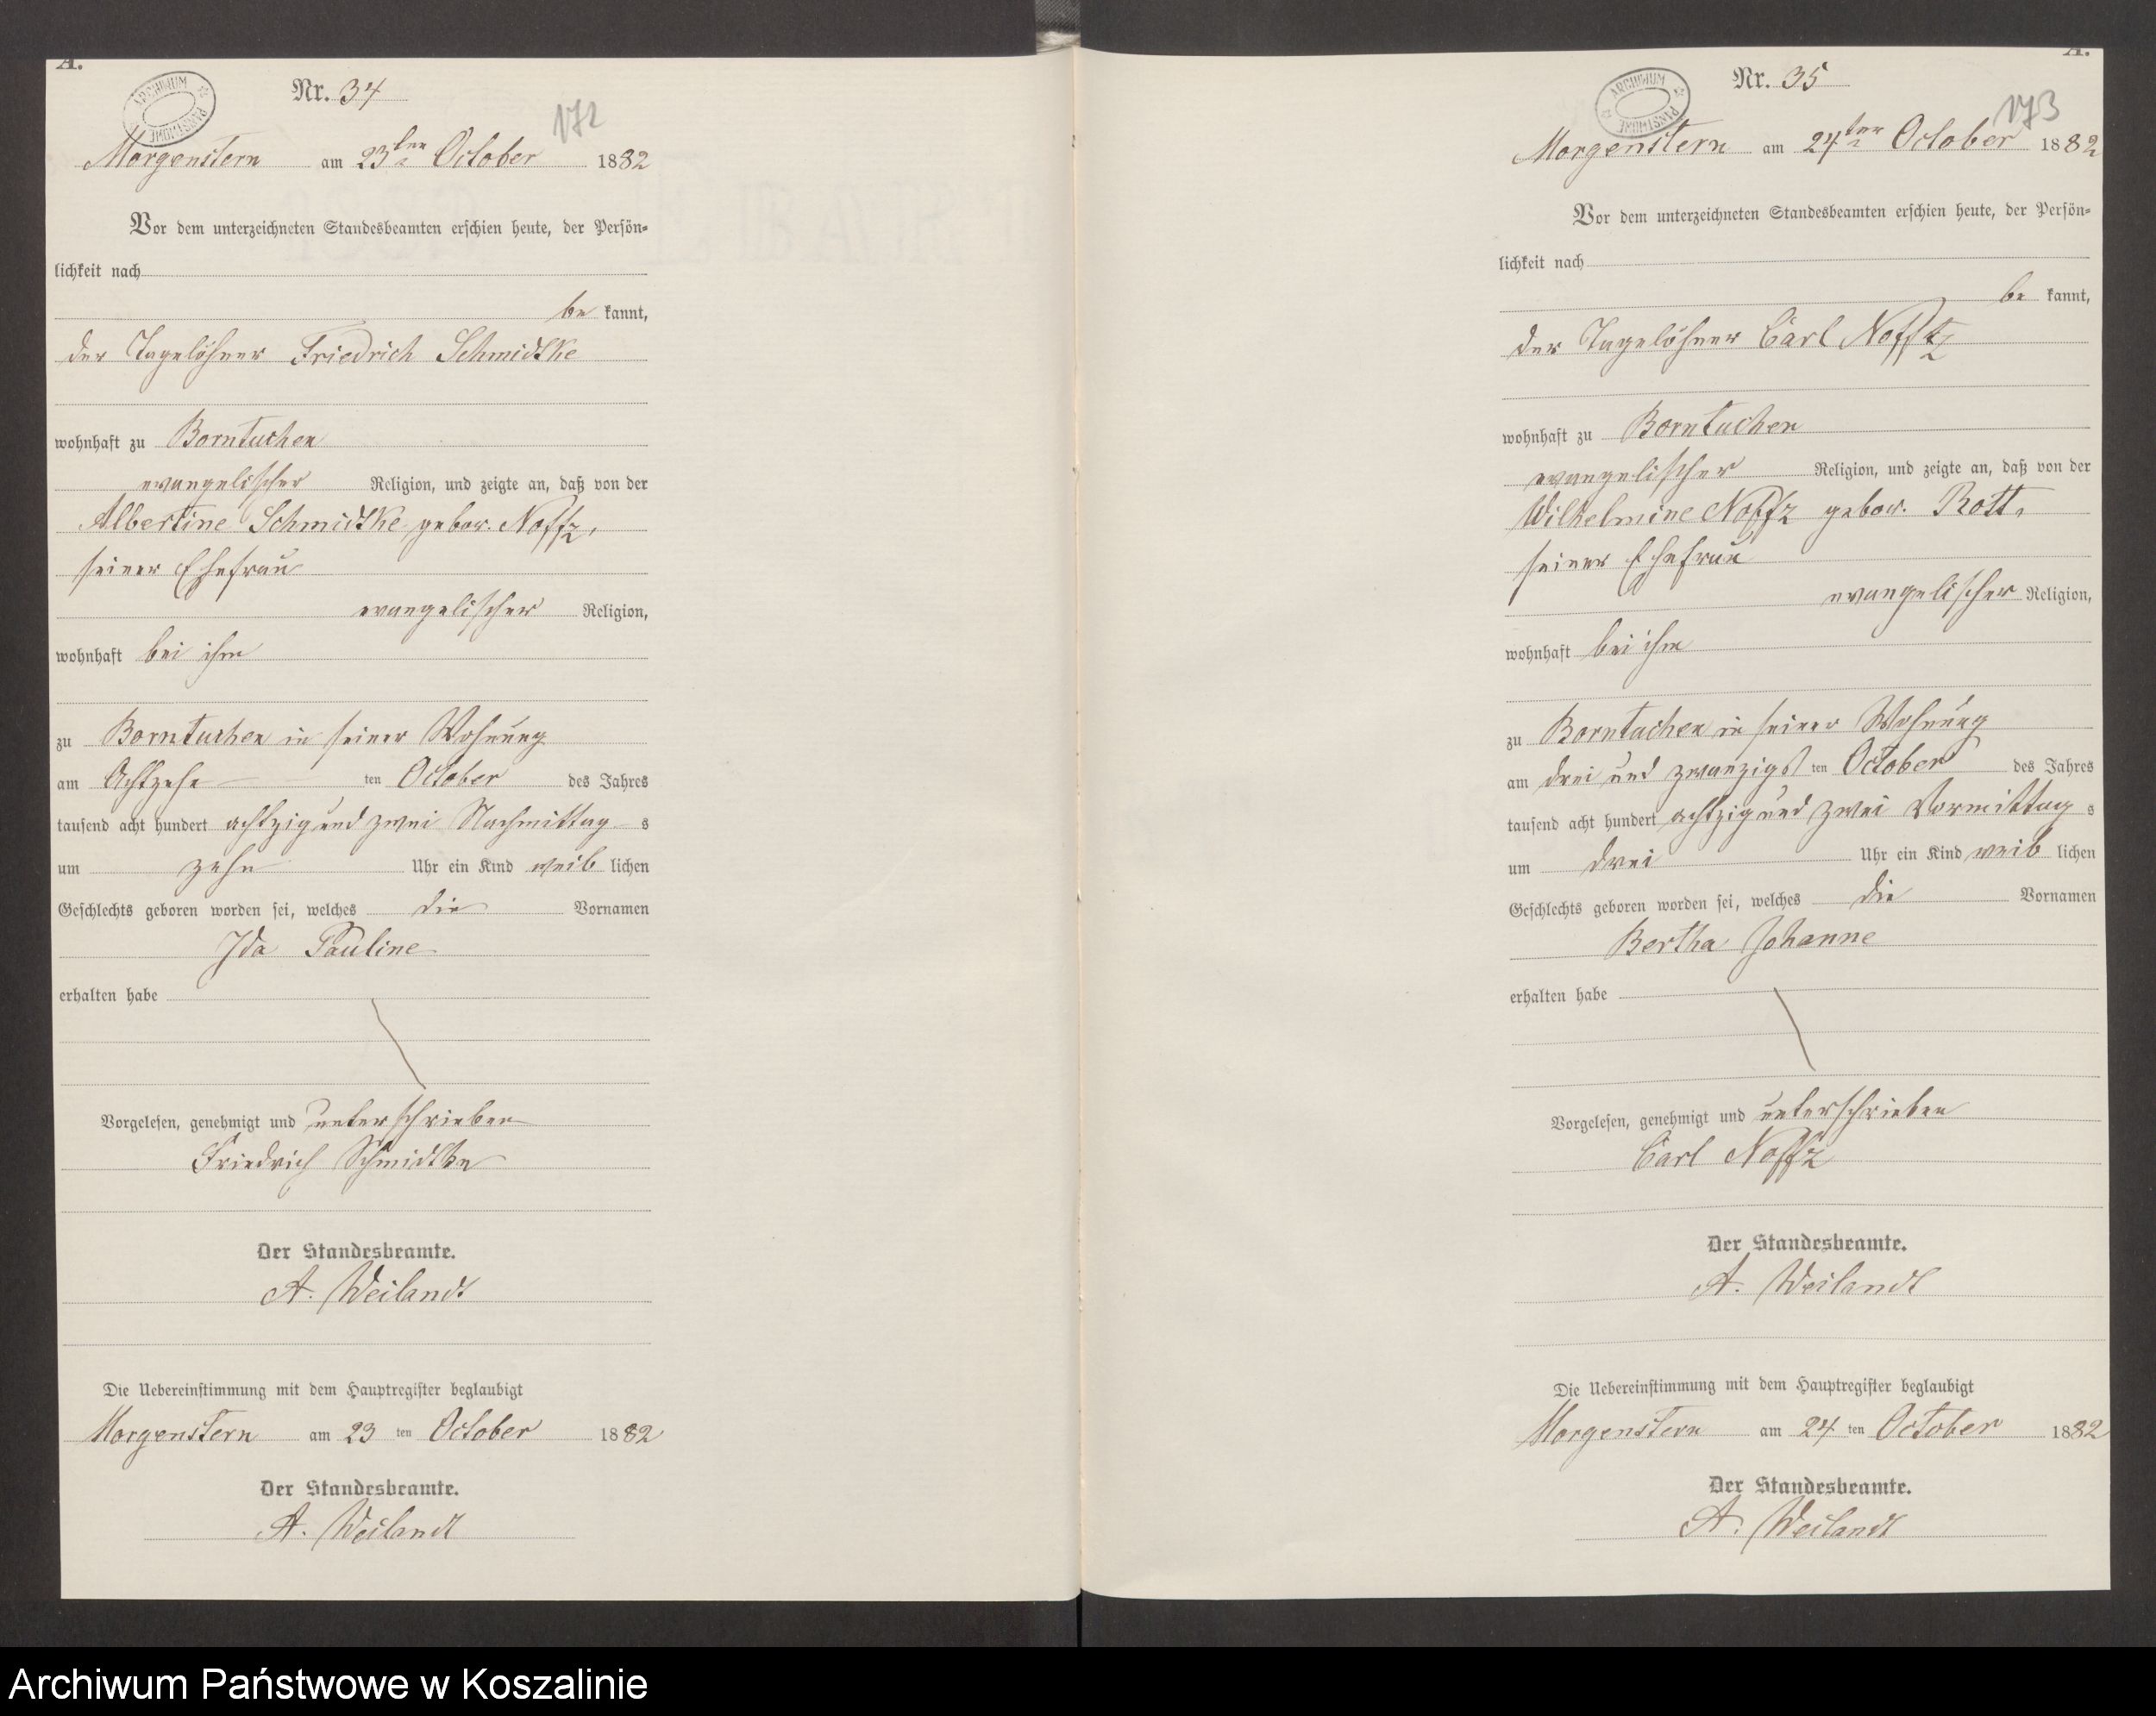 A.
Nr. 34
172
ARCHIWUM PAŃSTWOWE
Morgenstern am 23ten October 1882
Vor dem unterzeichneten Standesbeamten erschien heute, der Persön-
lichkeit nach
be kannt,
der Tagelöhner Friedrich Schmidtke
wohnhaft zu Borntuchen
evangelischer Religion, und zeigte an, daß von der
Albertine Schmidtke gebor. Noffz,
seiner Ehefrau
evangelischer Religion,
wohnhaft bei ihm
zu Borntuchen in seiner Wohnung
am Achtzehn ten October des Jahres
tausend acht hundert achtzig und zwei Nachmittag s
um zehn Uhr ein Kind weib lichen
Geschlechts geboren worden sei, welches die Vornamen
Ida Pauline
erhalten habe
Vorgelesen, genehmigt und unterschrieben
Friedrich Schmidtke
Der Standesbeamte.
A. Weilandt
Die Uebereinstimmung mit dem Hauptregister beglaubigt
Morgenstern am 23 ten October 1882
Der Standesbeamte.
A. Weilandt
A.
Nr. 35
173
ARCHIWUM PAŃSTWOWE
Morgenstern am 24ten October 1882
Vor dem unterzeichneten Standesbeamten erschien heute, der Persön-
lichkeit nach
be kannt,
der Tagelöhner Carl Noffz
wohnhaft zu Borntuchen
evangelischer Religion, und zeigte an, daß von der
Wilhelmine Noffz gebor. Rott,
seiner Ehefrau
evangelischer Religion,
wohnhaft bei ihm
zu Borntuchen in seiner Wohnung
am drei und zwanzigst ten October des Jahres
tausend acht hundert achtzig und zwei Vormittag s
um drei Uhr ein Kind weib lichen
Geschlechts geboren worden sei, welches die Vornamen
Bertha Johanne
erhalten habe
Vorgelesen, genehmigt und unterschrieben
Carl Noffz
Der Standesbeamte.
A. Weilandt
Die Uebereinstimmung mit dem Hauptregister beglaubigt
Morgenstern am 24 ten October 1882
Der Standesbeamte.
A. Weilandt
Archiwum Państwowe w Koszalinie